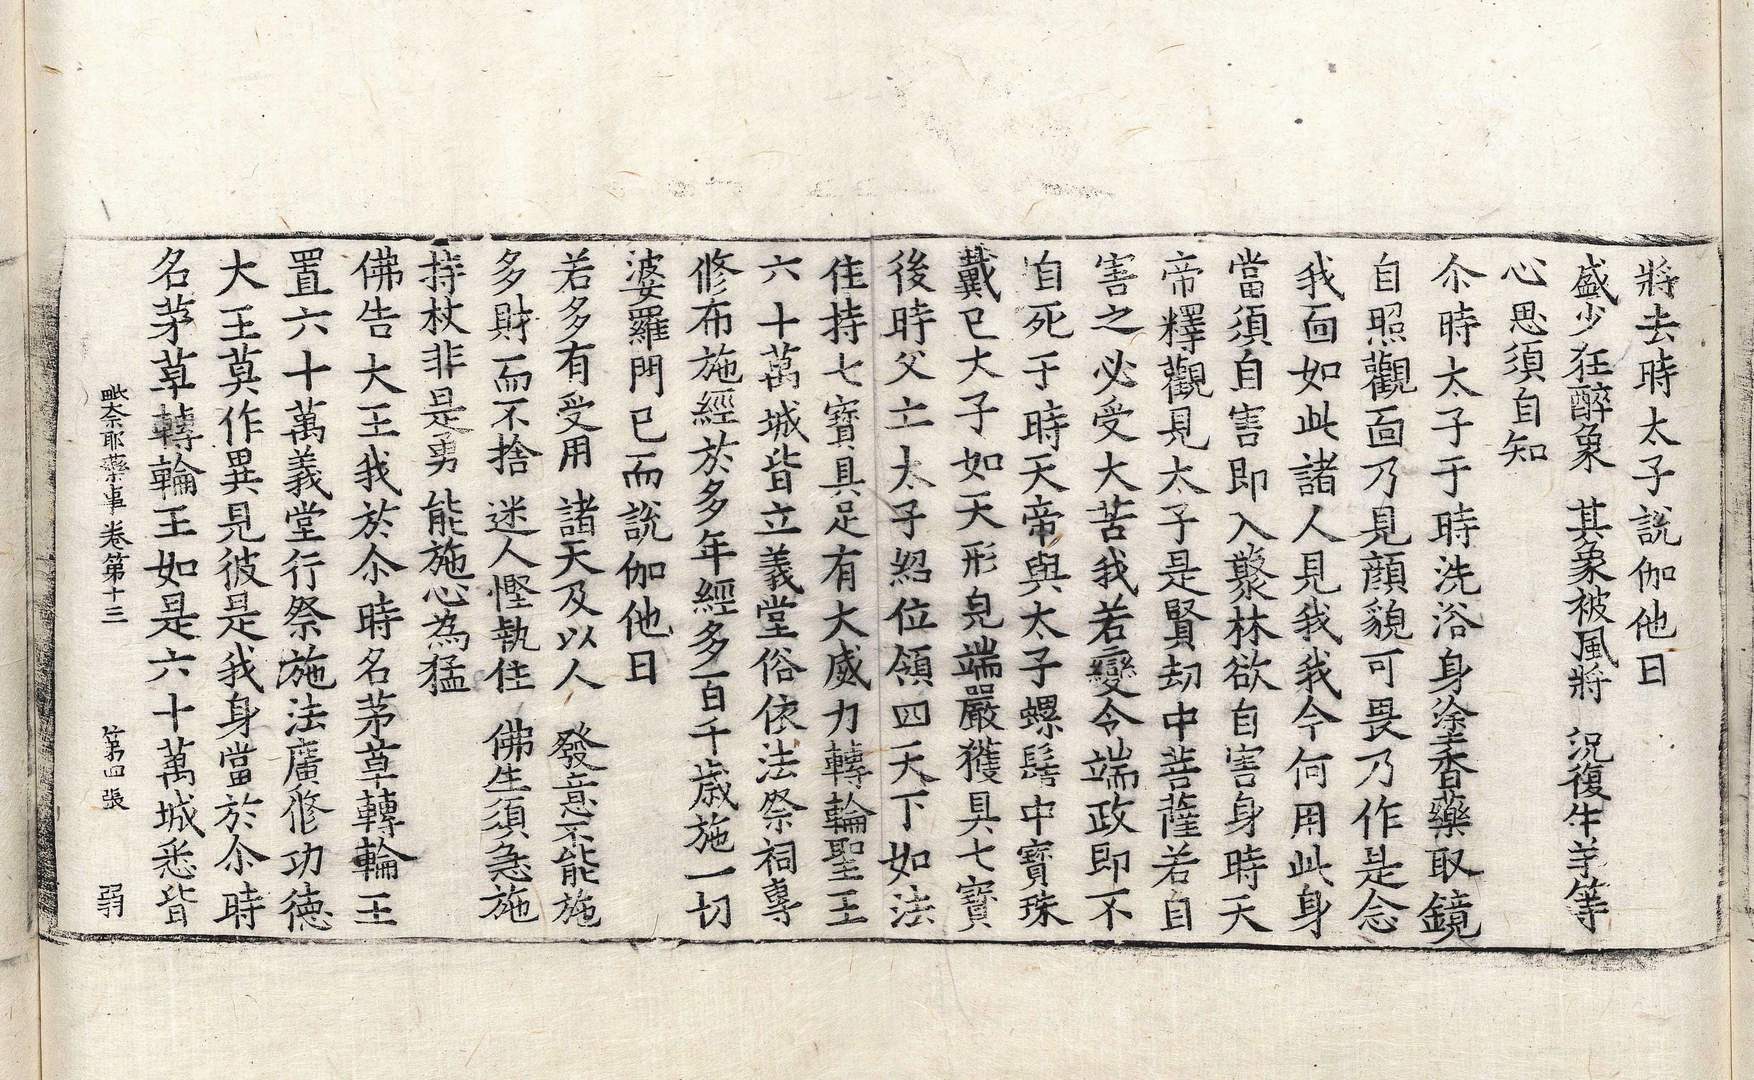 將去時太子說伽他曰
盛少狂醉象　其象被風將　況復牛羊等
心思須自知
尒時太子于時洗浴身塗香藥取鏡
自照觀面乃見顔貌可畏乃作是念
我面如此諸人見我我今何用此身
當須自害即入藂林欲自害身時天
帝釋觀見太子是賢劫中菩薩若自
害之必受大苦我若變令端政即不
自死于時天帝與太子螺髻中寶珠
戴已大子如天形皃端嚴獲具七寶
後時父亡太子紹位領四天下如法
住持七寶具足有大威力轉輪聖王
六十萬城皆立義堂俗依法祭祠專
修布施經於多年經多百千歲施一切
婆羅門已而說伽他曰
若多有受用　諸天及以人　發意不能施
多財而不捨　迷人慳執住　佛生須急施
持杖非是勇　能施心為猛
佛告大王我於尒時名茅草轉輪王
置六十萬義堂行祭施法廣修功德
大王莫作異見彼是我身當於尒時
名茅草轉輪王如是六十萬城悉皆
毗奈耶藥事卷第十三　第四張　弱